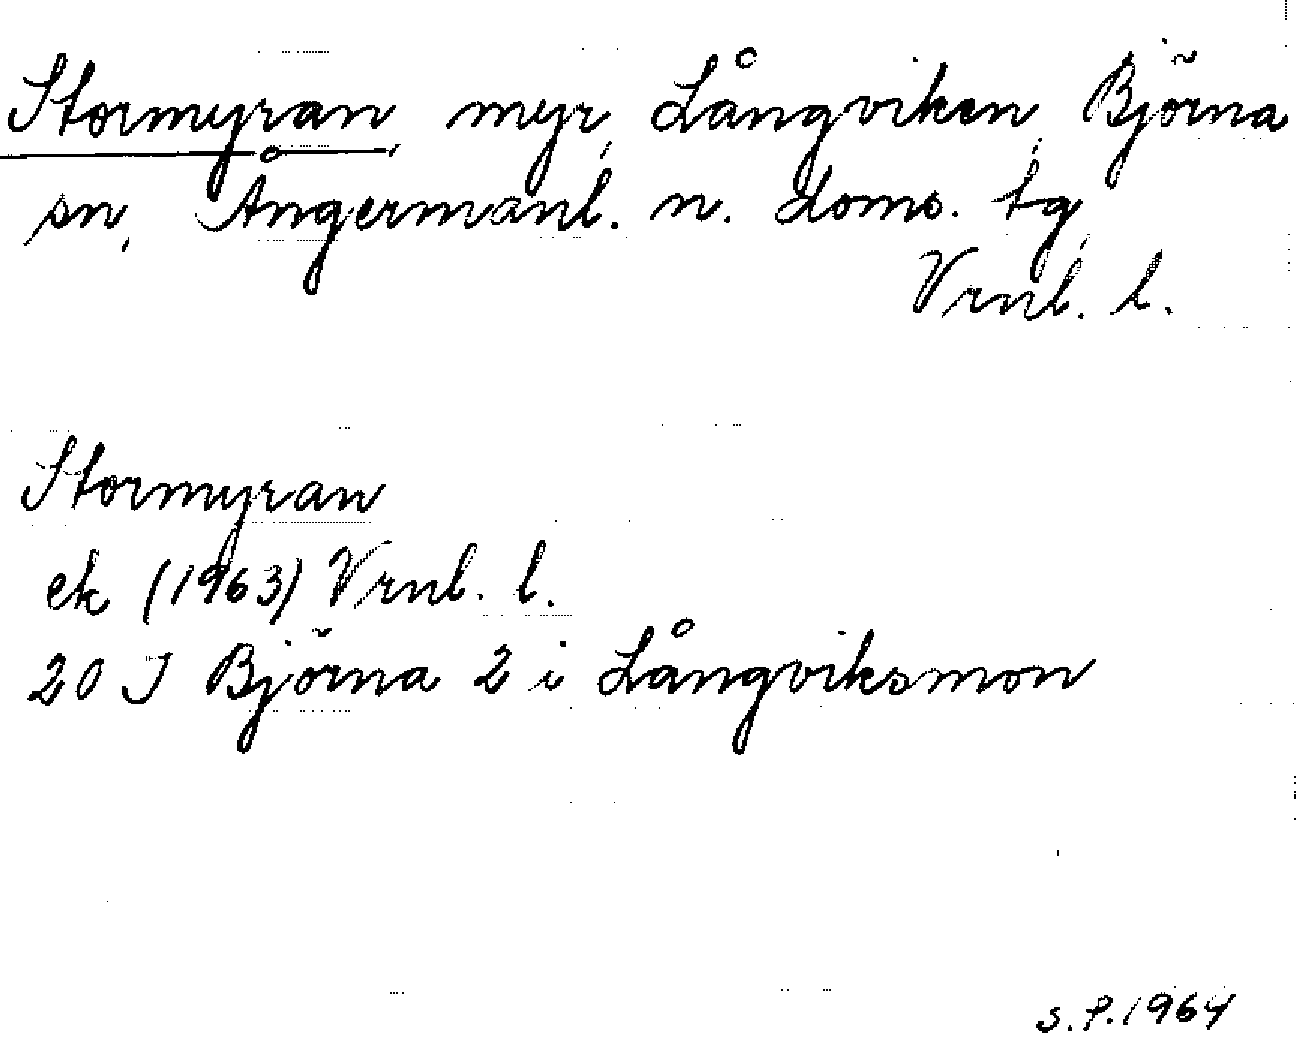 Stormyran, myr, Långviken, Björna
sn, Ångermanl. n. doms. tg,
Vrnl. l.
Stormyran
ek (1963) Vrnl. l.
20 J Björna 2 i Långviksmon
S.P.1964